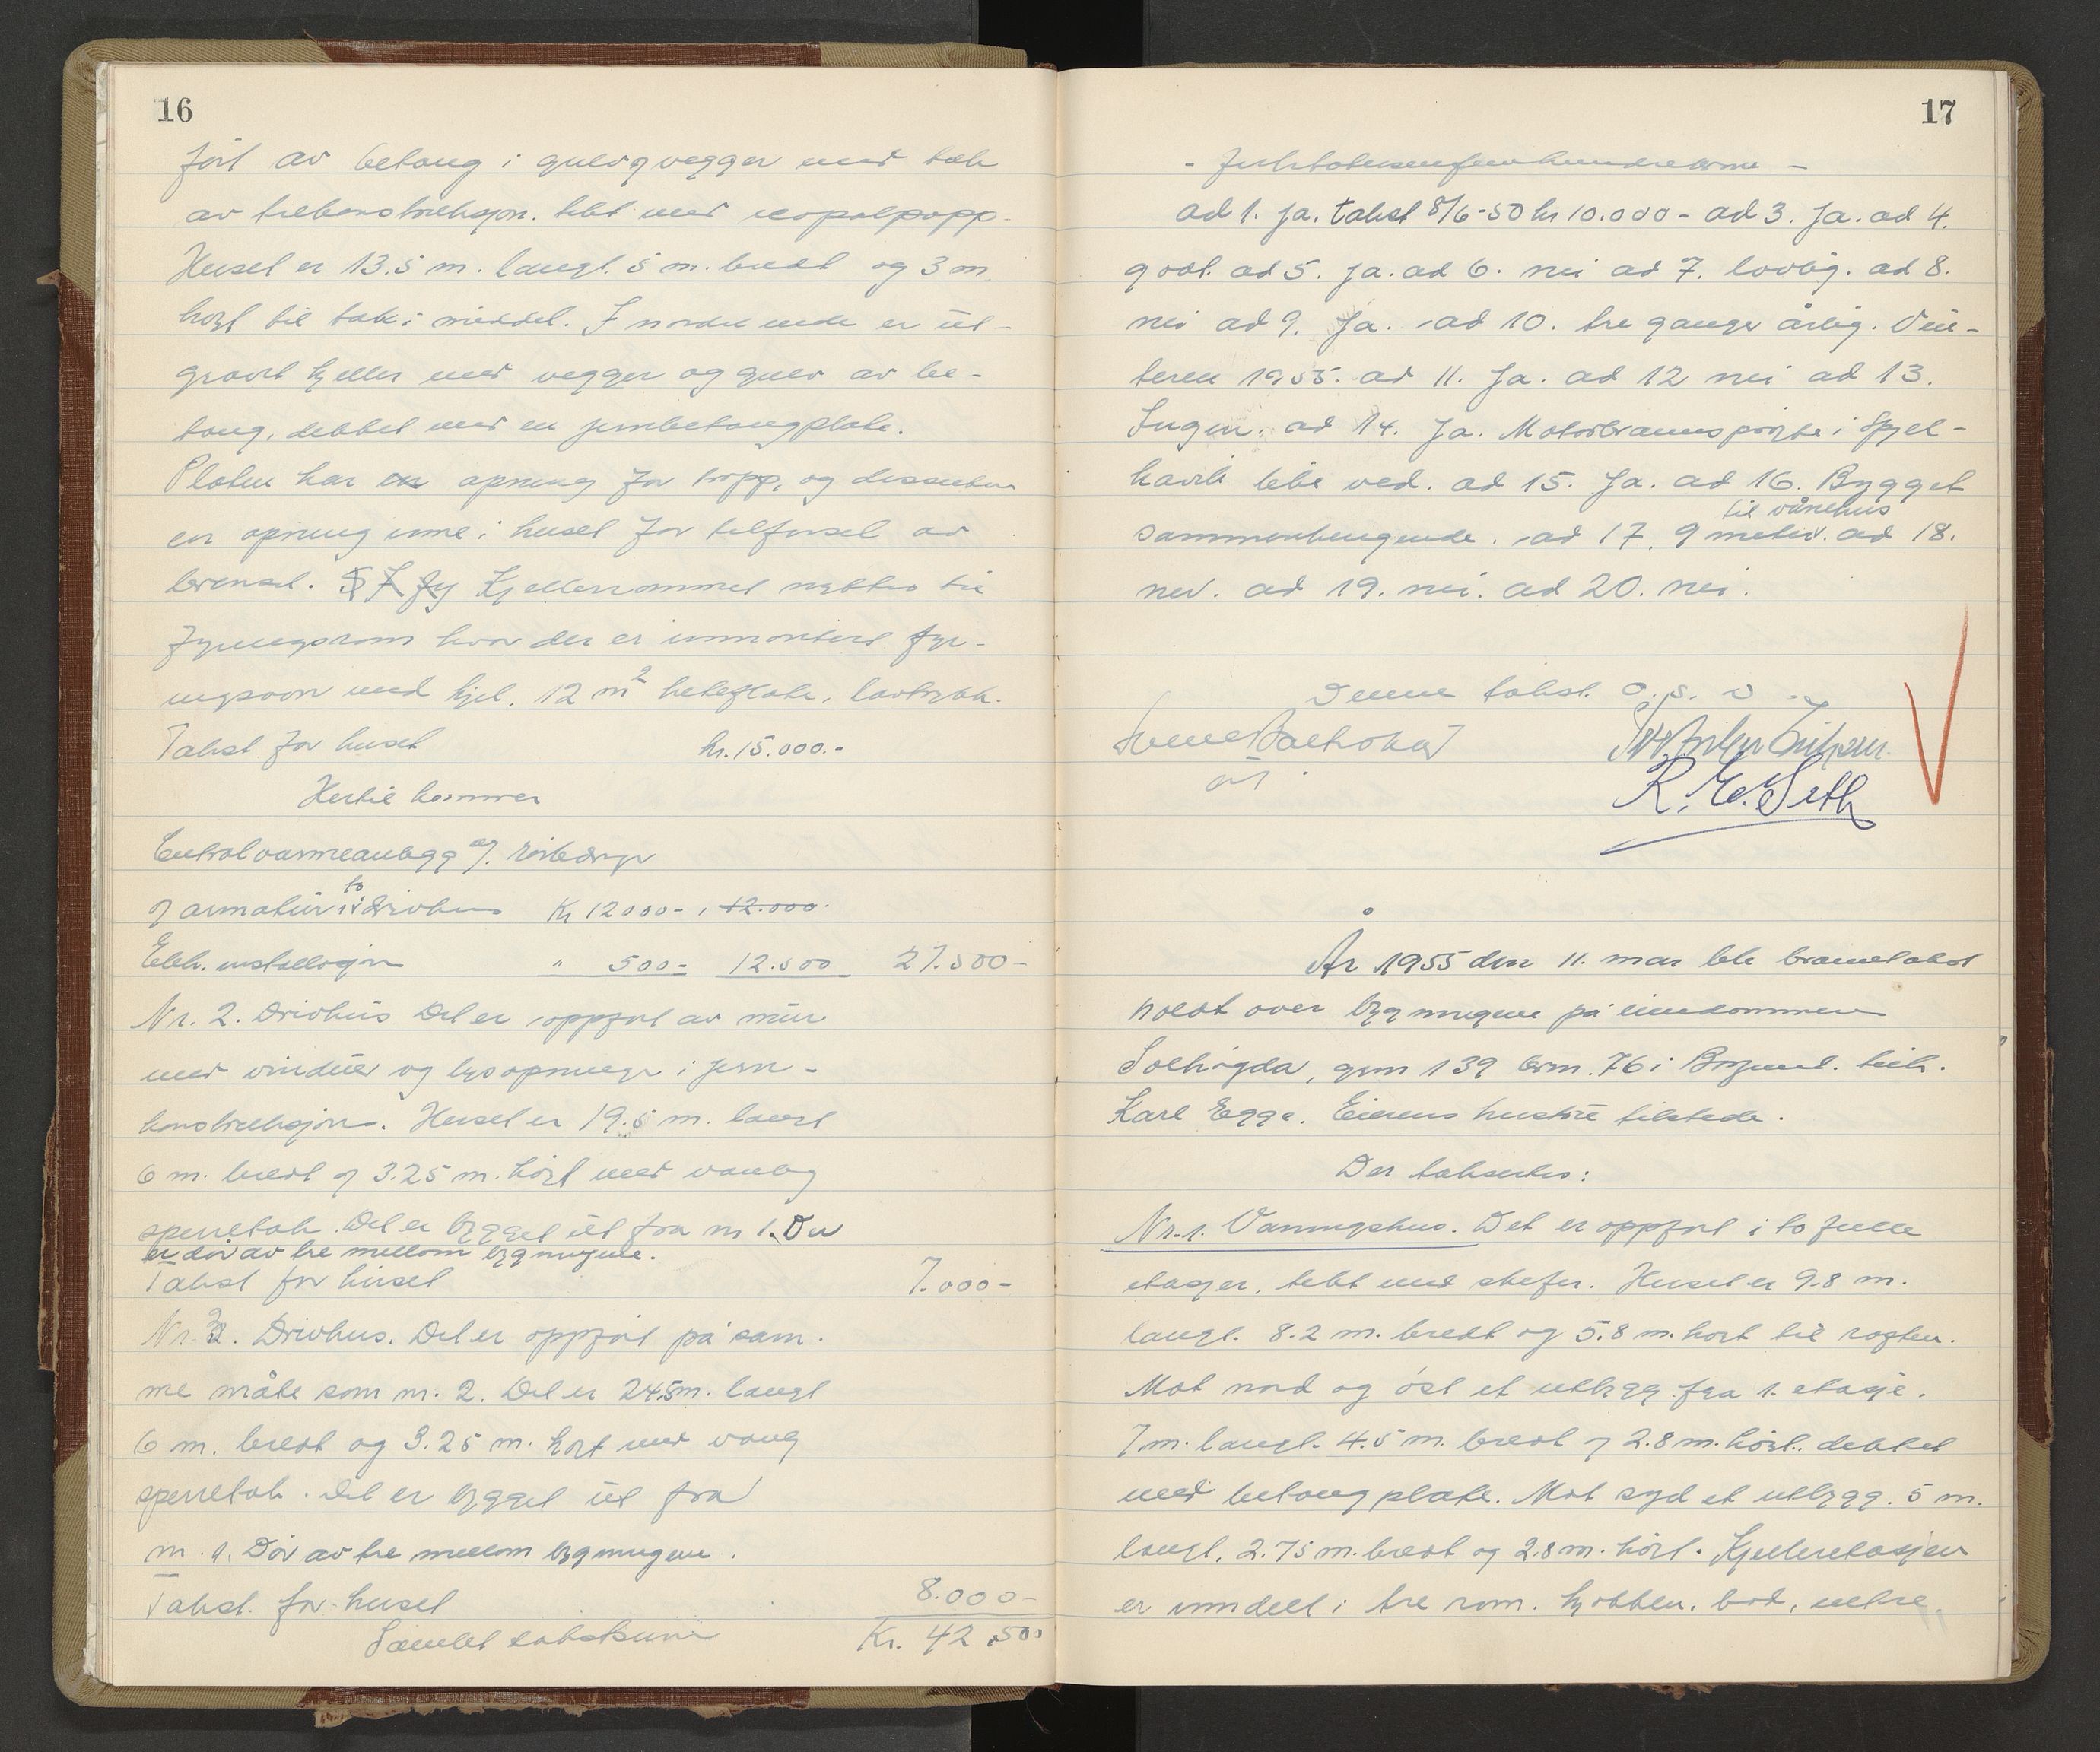 16
ført av betong i gulv og vegger med tak
av trekonstruksjon. tekt med icopalpapp.
Huset er 13.5 m. langt. 5 m. bredt og 3 m.
høgt til tak i middel. I nordre ende er ut-
gravt kjeller med vegger og gulv av be-
tong, dekket med en jernbetongplate.
Platen har en åpning for trapp, og dessuten
en åpning inne i huset for tilførsel av
brensel. Kjellerrommet nyttes til
fyringsrom hvor der er innmontert fyr-
ingsovn med kjel. 12 m2 heteflate, lavtrykk.
Takst for huset kr. 15.000.-
Hertil kommer
Centralvarmeanlegg m/. rørledninger
og armatur i to drivhus Kr 12000-, 12.000.
Elek. installasjon " 500- 12.500 27.500-
Nr. 2. Drivhus Det er oppført av mur
med vinduer og lysåpninger i jern-
konstruksjon. Huset er 19.5 m. langt
6 m. bredt og 3.25 m. høgt med vanlig
sperretak. Det er bygget ut fra nr 1. Der
er dør av tre mellom bygningene.
Takst for huset 7.000-
Nr. 3. Drivhus. Det er oppført på sam-
me måte som nr. 2. Det er 24.5 m. langt
6 m. bredt og 3.25 m. høgt med vanlig
sperretak. Det er bygget ut fra
nr. 1. Dør av tre mellom bygningene.
Takst for huset 8.000-
Samlet takstsum Kr. 42.500
17
- førtitotusenfemhundrekroner -
ad 1. Ja. takst 8/6-50 kr 10.000- ad 3. Ja. ad 4.
godt. ad 5. Ja. ad 6. nei ad 7. lovlig. ad 8.
nei ad 9. Ja. ad 10. tre ganger årlig. Vin-
teren 1955. ad 11. Ja. ad 12 nei ad 13.
Ingen. ad 14. Ja. Motorbrannsprøyte i Spjel-
kavik like ved. ad 15. Ja. ad 16. Bygget
sammenhengende. ad 17. 9 meter til vånehus. ad 18.
nei. ad 19. nei. ad 20. nei.
Denne takst o. s. v.
R. E. Seth
År 1955 den 11. mars ble branntakst
holdt over bygningene på eiendommen
Solhøgda, gnr 139 brnr. 76 i Borgund. tilh.
Karl Egge. Eierens hustru tilstede.
Der taksertes:
Nr. 1. Våningshus. Det er oppført i to fulle
etasjer, tekt med skifer. Huset er 9.8 m.
langt. 8.2 m. bredt og 5.8 m. høgt til røsten.
Mot nord og øst et utbygg fra 1. etasje.
7 m. langt. 4.5 m. bredt og 2.8 m. høgt. dekket
med betongplate. Mot syd et utbygg. 5 m.
langt, 2.75 m. bredt og 2.8 m. høgt. Kjelleretasjen
er inndelt i tre rom. kjøkken, bod, indre